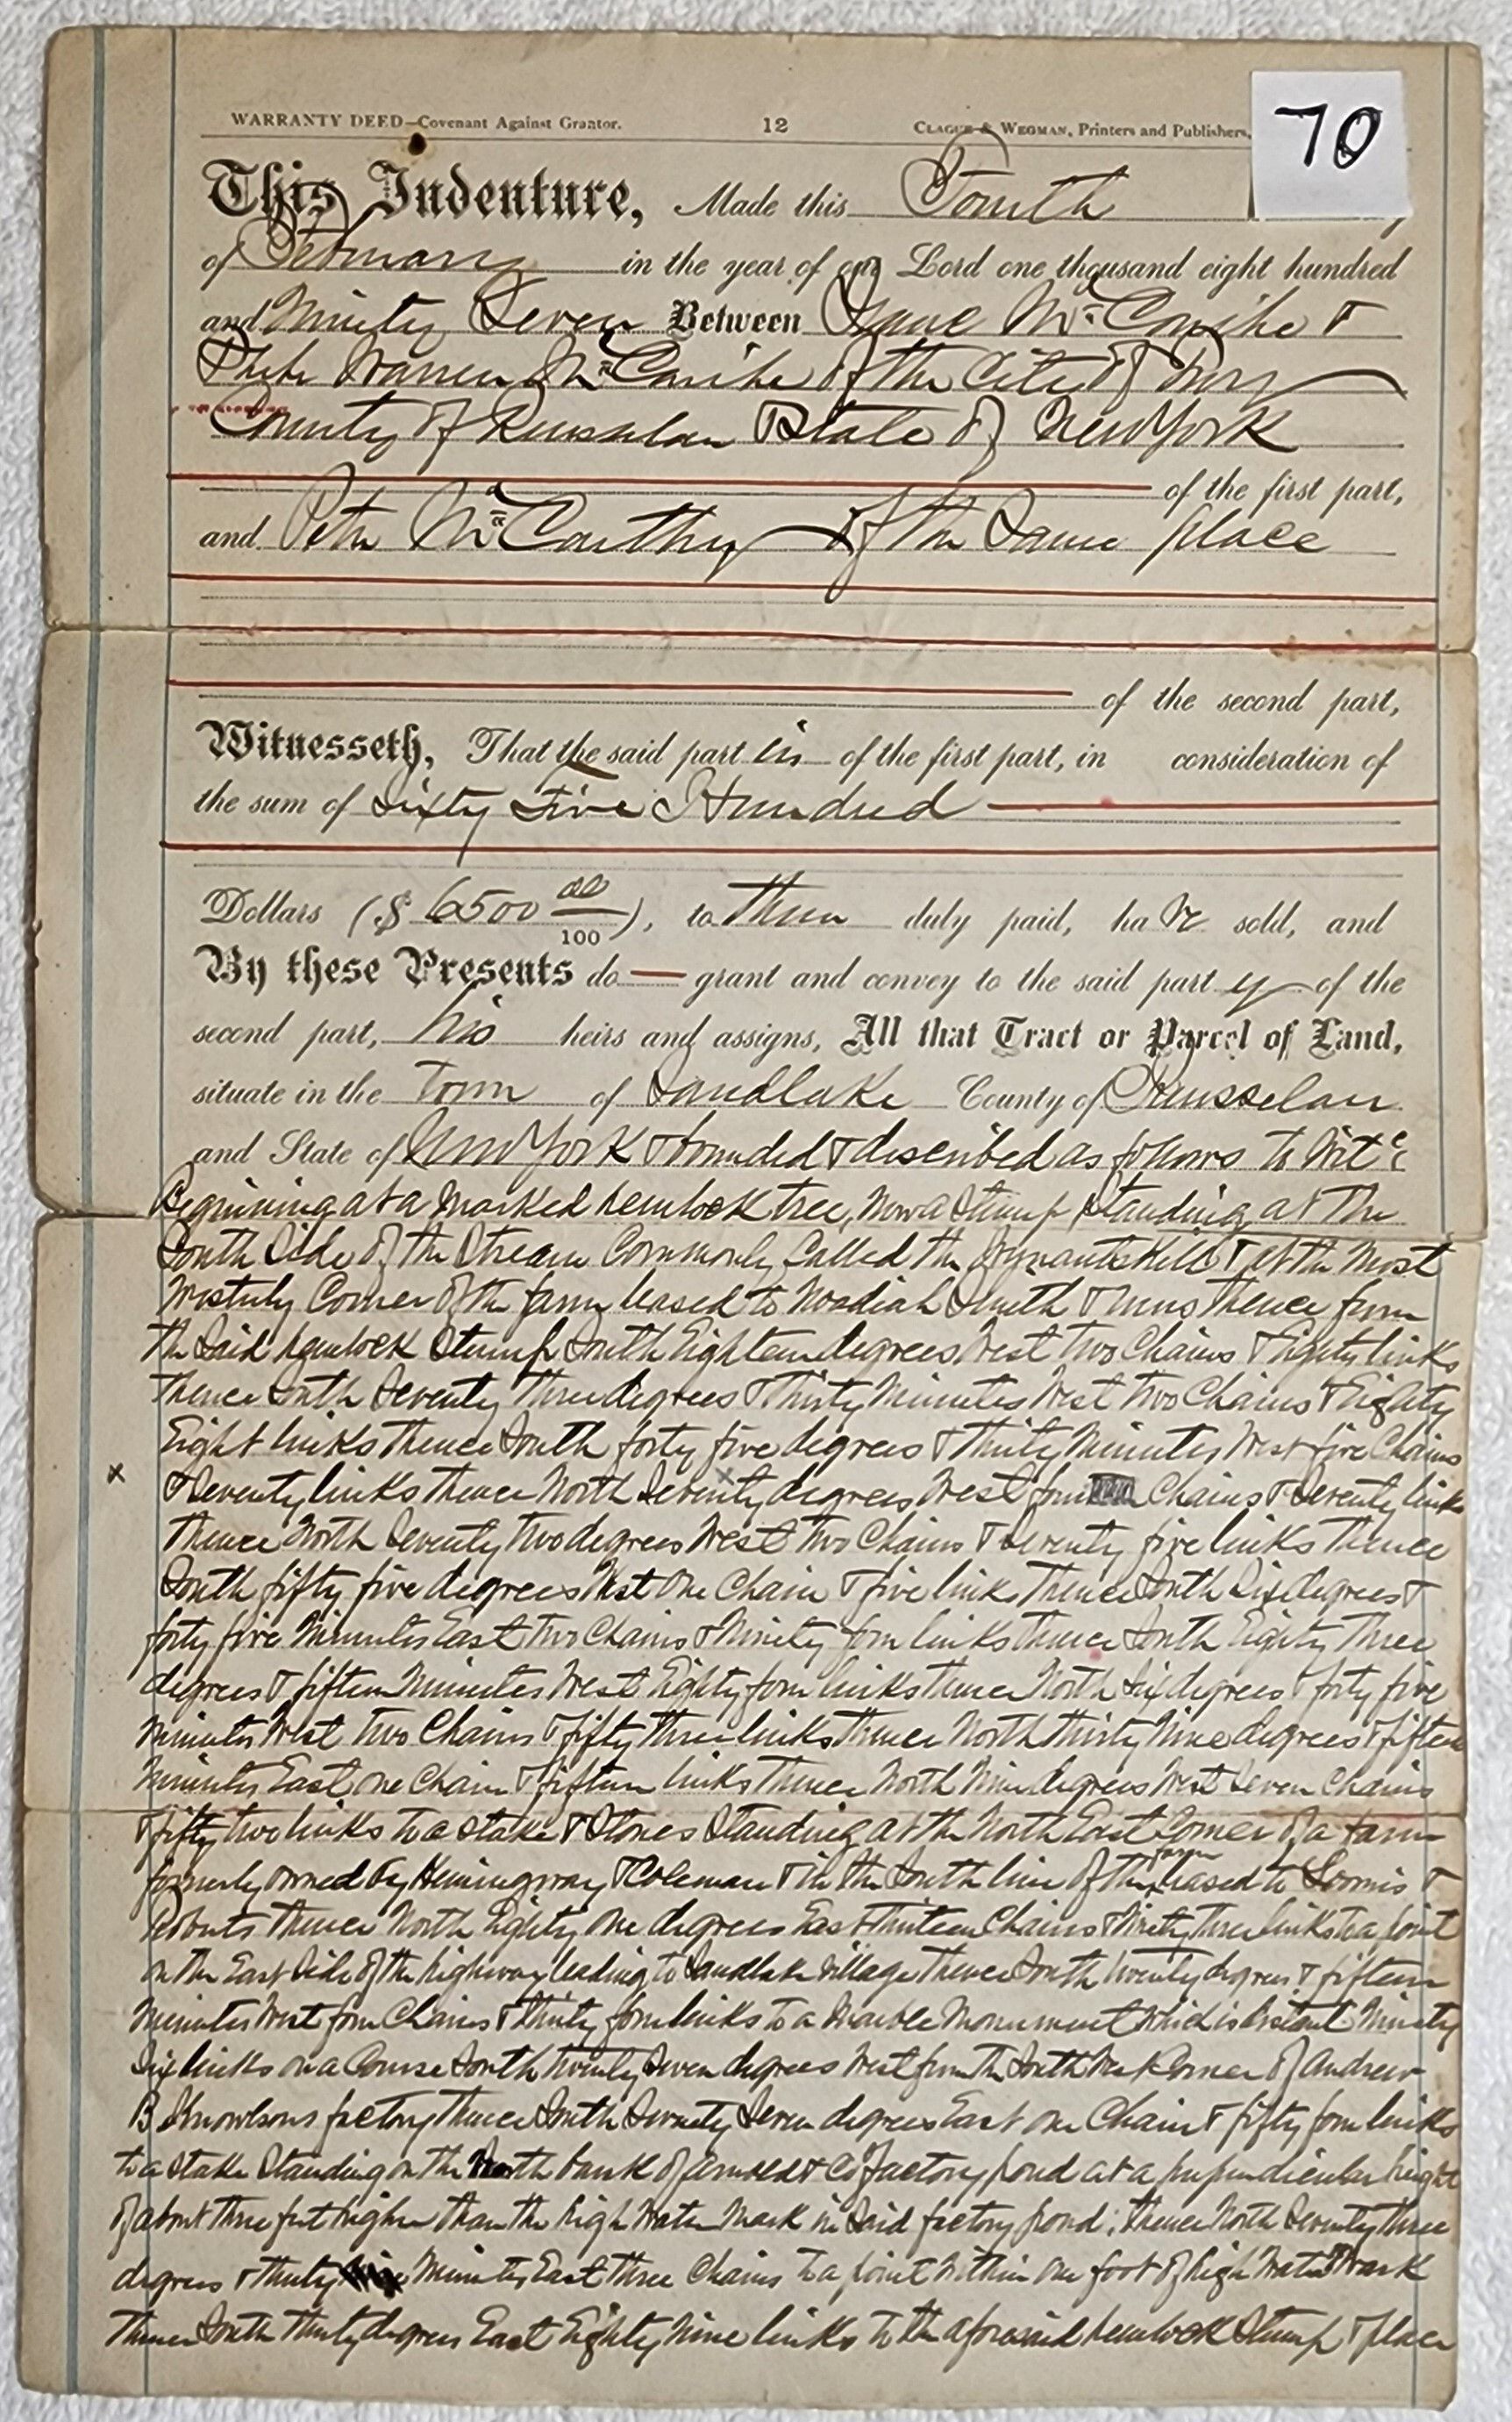 70
WARRANTY DEED—Covenant Against Grantor. 12 CLAGUE & WEGMAN, Printers and Publishers,
This Indenture, Made this Fourth
of February in the year of our Lord one thousand eight hundred
and Ninety Seven Between Isaac McConihe &
Phebe Warren McConihe of the City of Troy
County of Rensselaer & State of New York
of the first part,
and Peter McCarthy of the Same place
of the second part,
Witnesseth, That the said parties of the first part, in consideration of
the sum of Sixty Five Hundred
Dollars ($ 6500 00/100), to them duly paid, have sold, and
By these Presents do grant and convey to the said party of the
second part, his heirs and assigns, All that Tract or Parcel of Land,
situate in the Town of Sandlake County of Rensselaer
and State of New York & bounded & described as follows to Wit:
Beginning at a marked hemlock tree, now a Stump Standing at the
South Side of the Stream Commonly Called the Wynantskill & at the Most
Westerly Corner of the farm leased to Noadiah Smith & runs thence from
the Said hemlock Stump South Eighteen degrees West two Chains & Eighty links
thence South Seventy three degrees & Thirty Minutes West two Chains & Eighty
Eight links thence South forty five degrees & Thirty Minutes West five Chains
x & Seventy links thence North Seventy degrees West four Chains & Seventy links
thence North Seventy two degrees West two Chains & Seventy five links thence
South fifty five degrees West One Chain & five links thence South Six degrees &
forty five Minutes East two Chains & Ninety four links thence South Eighty three
degrees & fifteen Minutes West Eighty four links thence North Six degrees & forty five
minutes West two Chains & fifty three links thence North thirty Nine degrees & fifteen
Minutes East one Chain & fifteen links thence North Nine degrees West Seven Chains
& fifty two links to a Stake & Stones Standing at the North East Corner of a farm
formerly owned by Hemingway & Coleman & in the South line of the farm leased to Loomis &
Roberts thence North Eighty One degrees East thirteen Chains & Ninety three links to a point
on the East Side of the highway leading to Sandlake village thence South twenty degrees & fifteen
minutes West four Chains & thirty four links to a Marble Monument which is distant Ninety
Six links on a Course South twenty Seven degrees West from the South West Corner of Andrew
B Knowlsons factory thence South Seventy Seven degrees East one Chain & fifty four links
to a stake Standing on the North bank of Arnold & Co factory pond at a perpendicular height
of about three feet higher than the high Water Mark in Said factory pond; thence North Seventy three
degrees & thirty Minutes East three Chains to a point within one foot of high Water Mark
thence South thirty degrees East Eighty Nine links to the aforesaid hemlock Stump & place